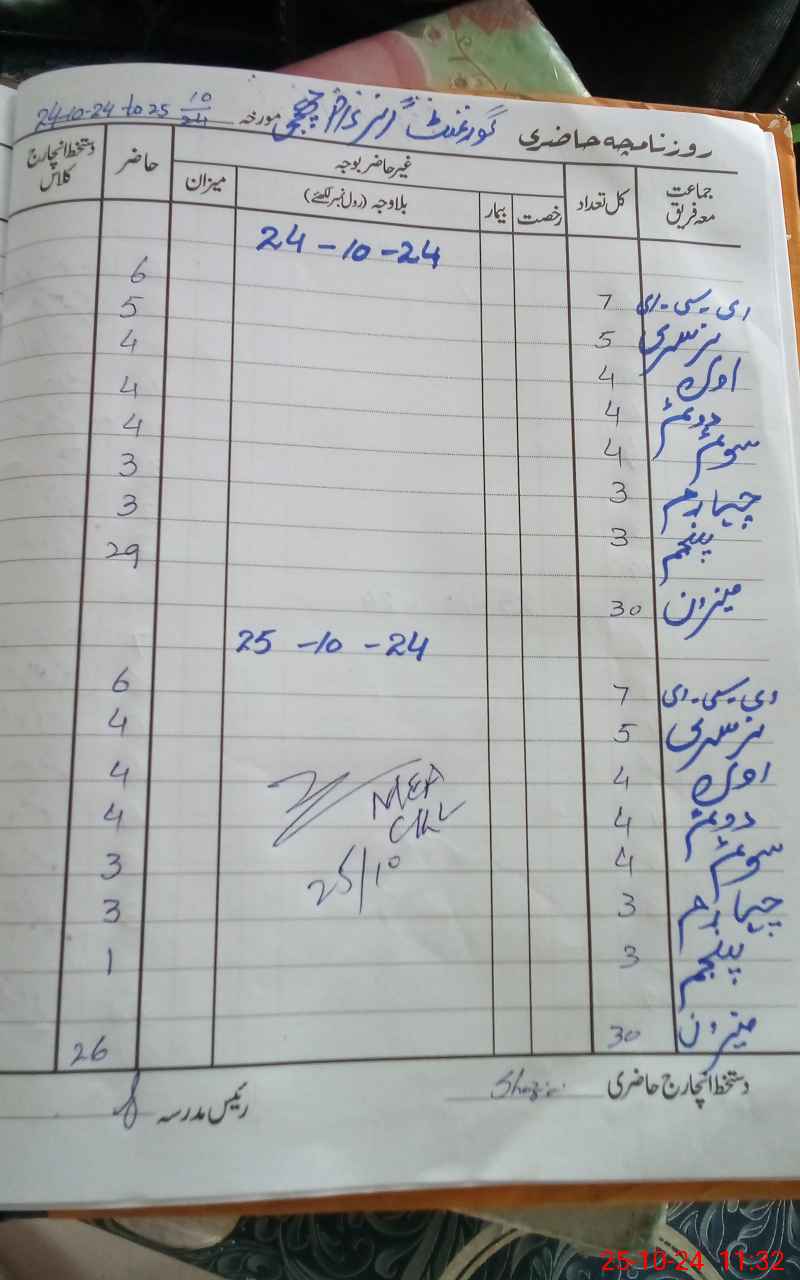 روزنامچہ حاضری گورنمنٹ مورخہ 24-10-24 to 25 10/24
جماعت معہ فریق کل تعداد غیر حاضر بوجہ حاضر دستخط انچارج کلاس
رخصت بیمار بلاوجہ (رول نمبر لکھئے) میزان
24-10-24
ای-سی-ای 7 6
نرسری 5 5
اول 4 4
دوئم 4 4
سوئم 4 4
چہارم 3 3
پنجم 3 3
میزان 30 29
25-10-24
ای-سی-ای 7 6
نرسری 5 4
اول 4 4
دوئم 4 4
سوئم 4 3
چہارم 3 3
پنجم 3 1
میزان 30 26
25/10
دستخط انچارج حاضری رئیس مدرسہ
25-10-24 11:32